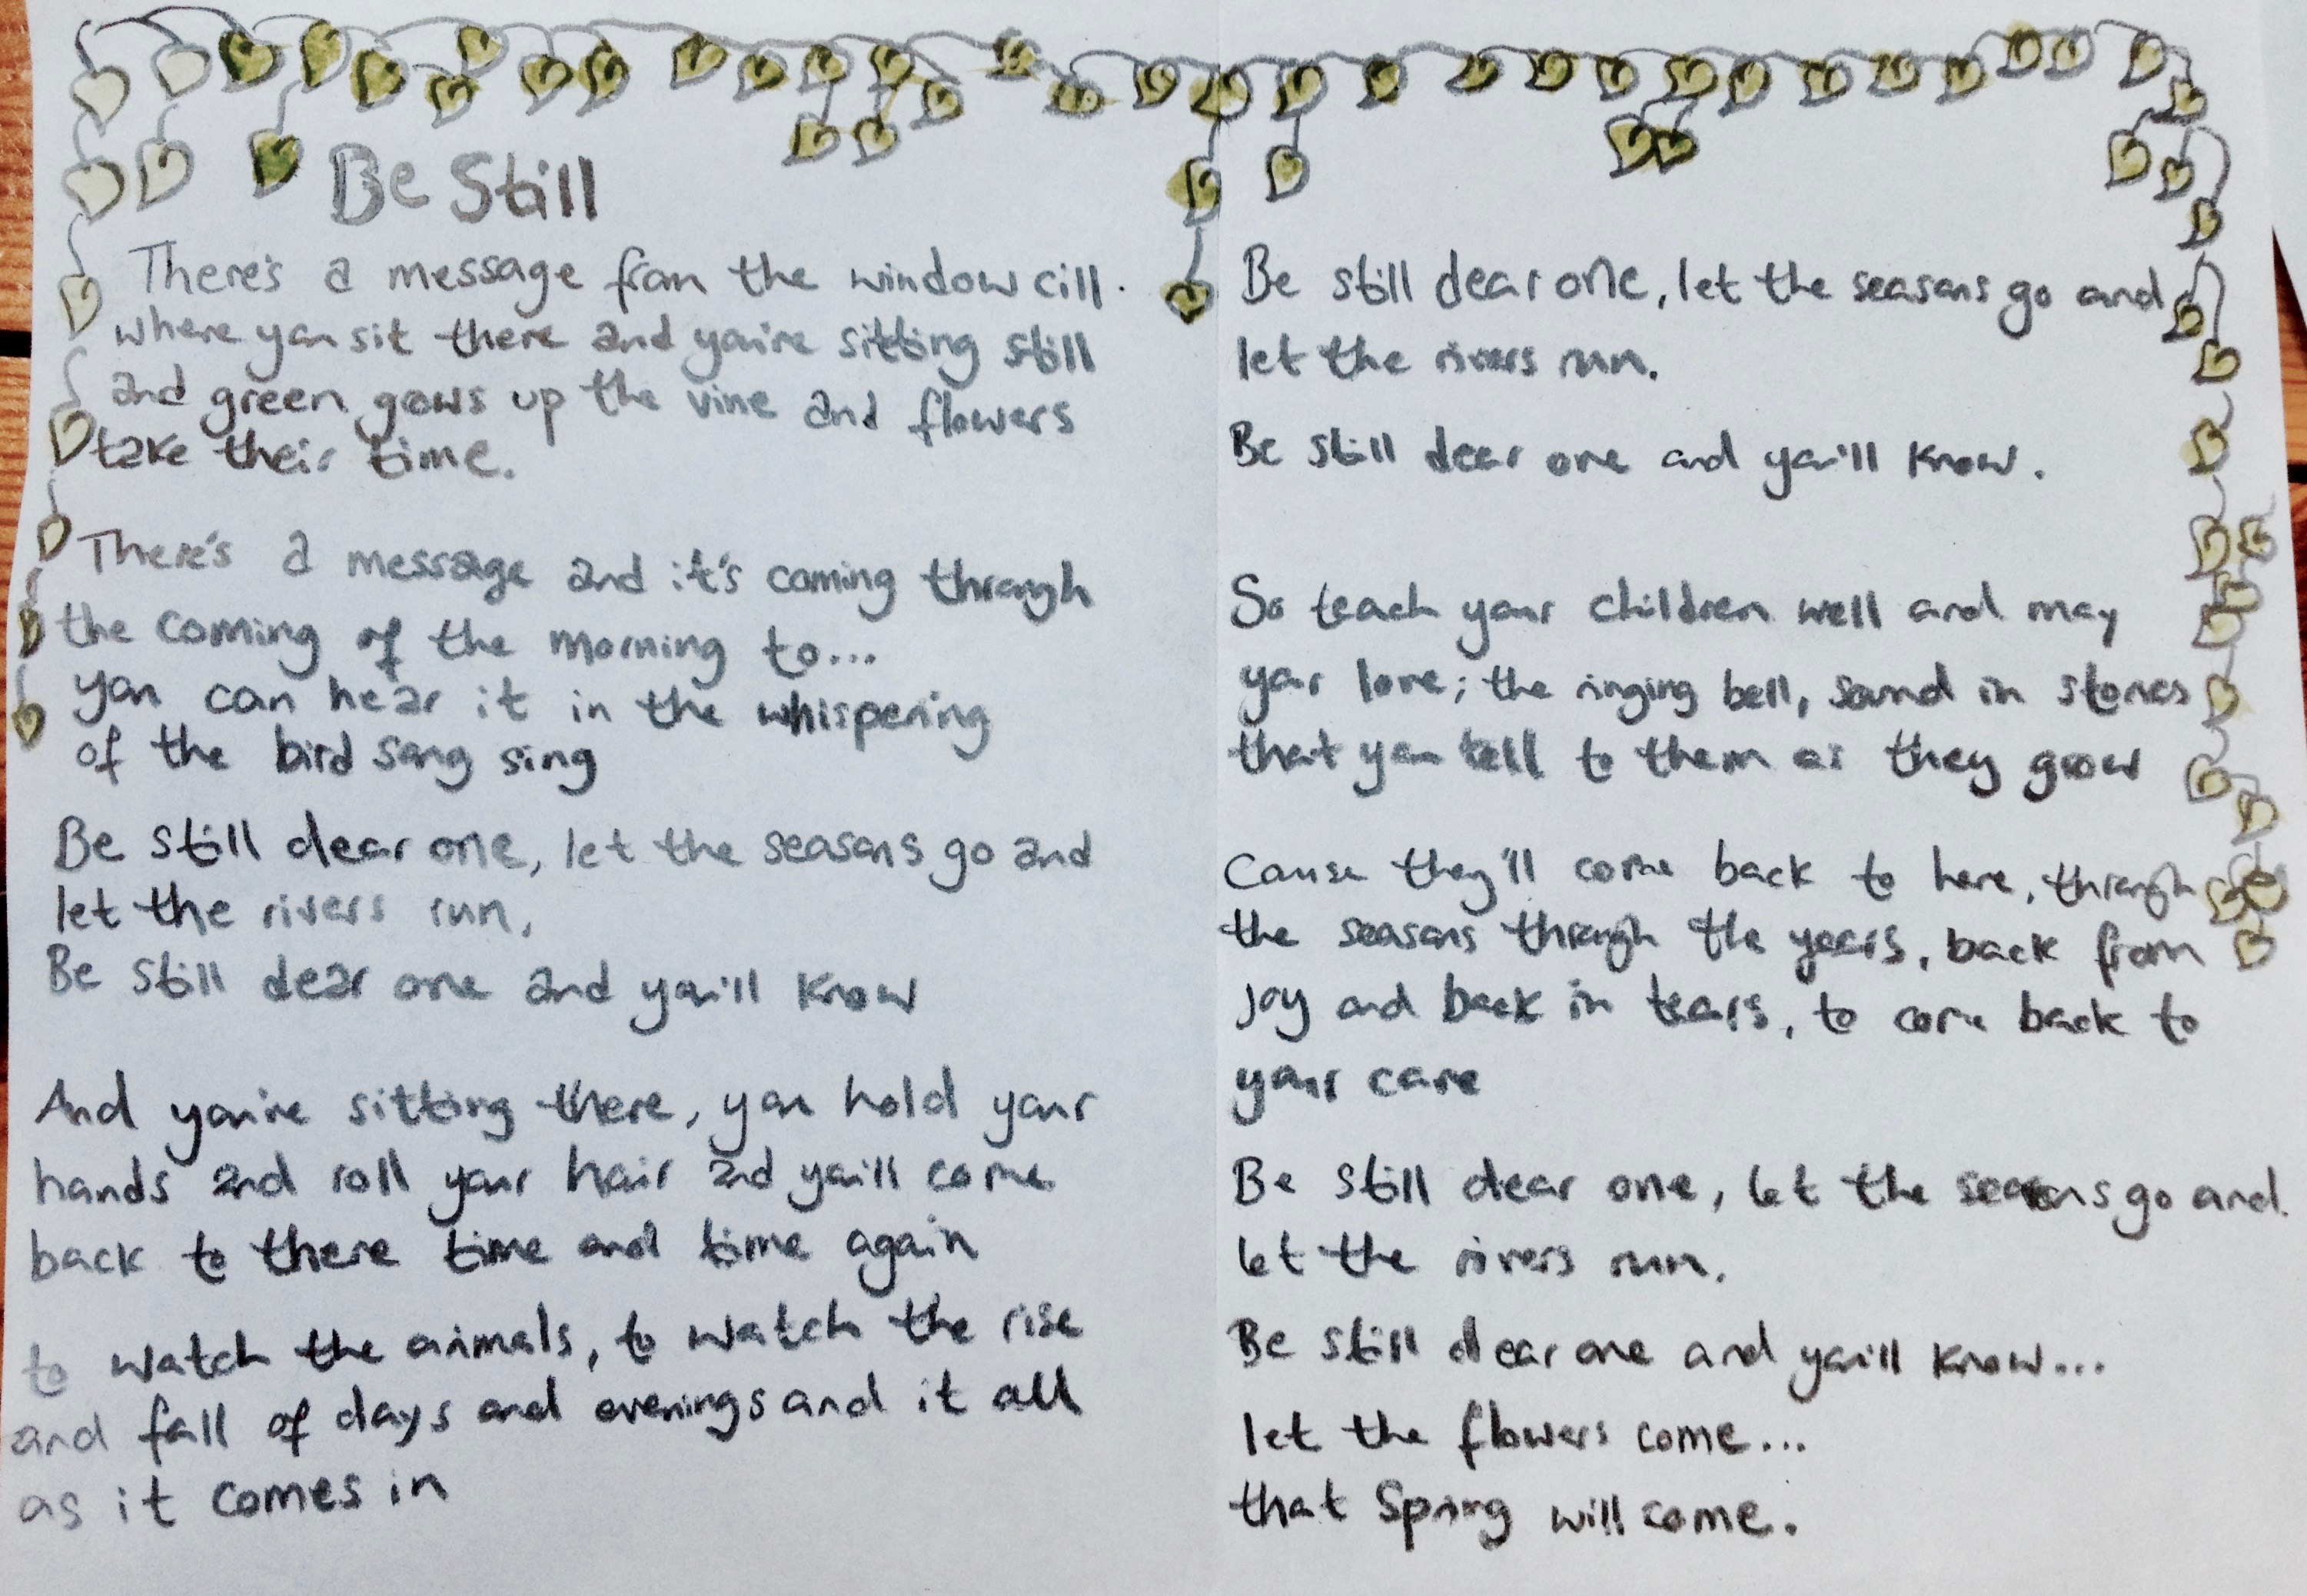 Be Still
There's a message from the window cill.
where you sit there and you're sitting still
and green grows up the vine and flowers
take their time.
There's a message and it's coming through
the coming of the morning to...
you can hear it in the whispering
of the bird song sing
Be still dear one, let the seasons go and
let the rivers run,
Be still dear one and you'll know
And you're sitting there, you hold your
hands and roll your hair and you'll come
back to there time and time again
to watch the animals, to watch the rise
and fall of days and evenings and it all
as it comes in
Be still dear one, let the seasons go and
let the rivers run.
Be still dear one and you'll know.
So teach your children well and may
your love; the ringing bell, sound in stories
that you tell to them as they grow
Cause they'll come back to here, through
the seasons through the years, back from
joy and back in tears, to come back to
your care
Be still dear one, let the seasons go and.
let the rivers run.
Be still dear one and you'll know...
let the flowers come...
that Spring will come.